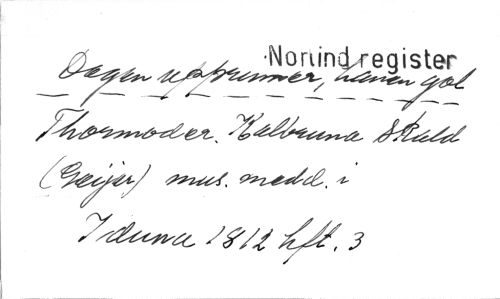 Norlind register
Dagen upprinner, hanen gol
Thormoder. Kolbruna Skald
(Geijer) mus. medd. i
Iduna 1812 hft. 3